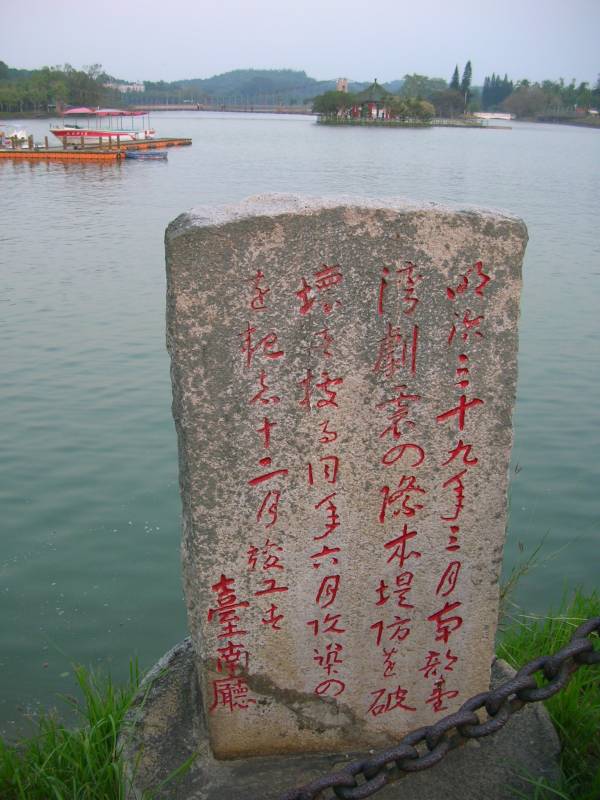 明治三十九年三月南部臺
湾劇震の際本堤防を破
壞同年六月改築の
を起志十二月竣工す
臺南廳